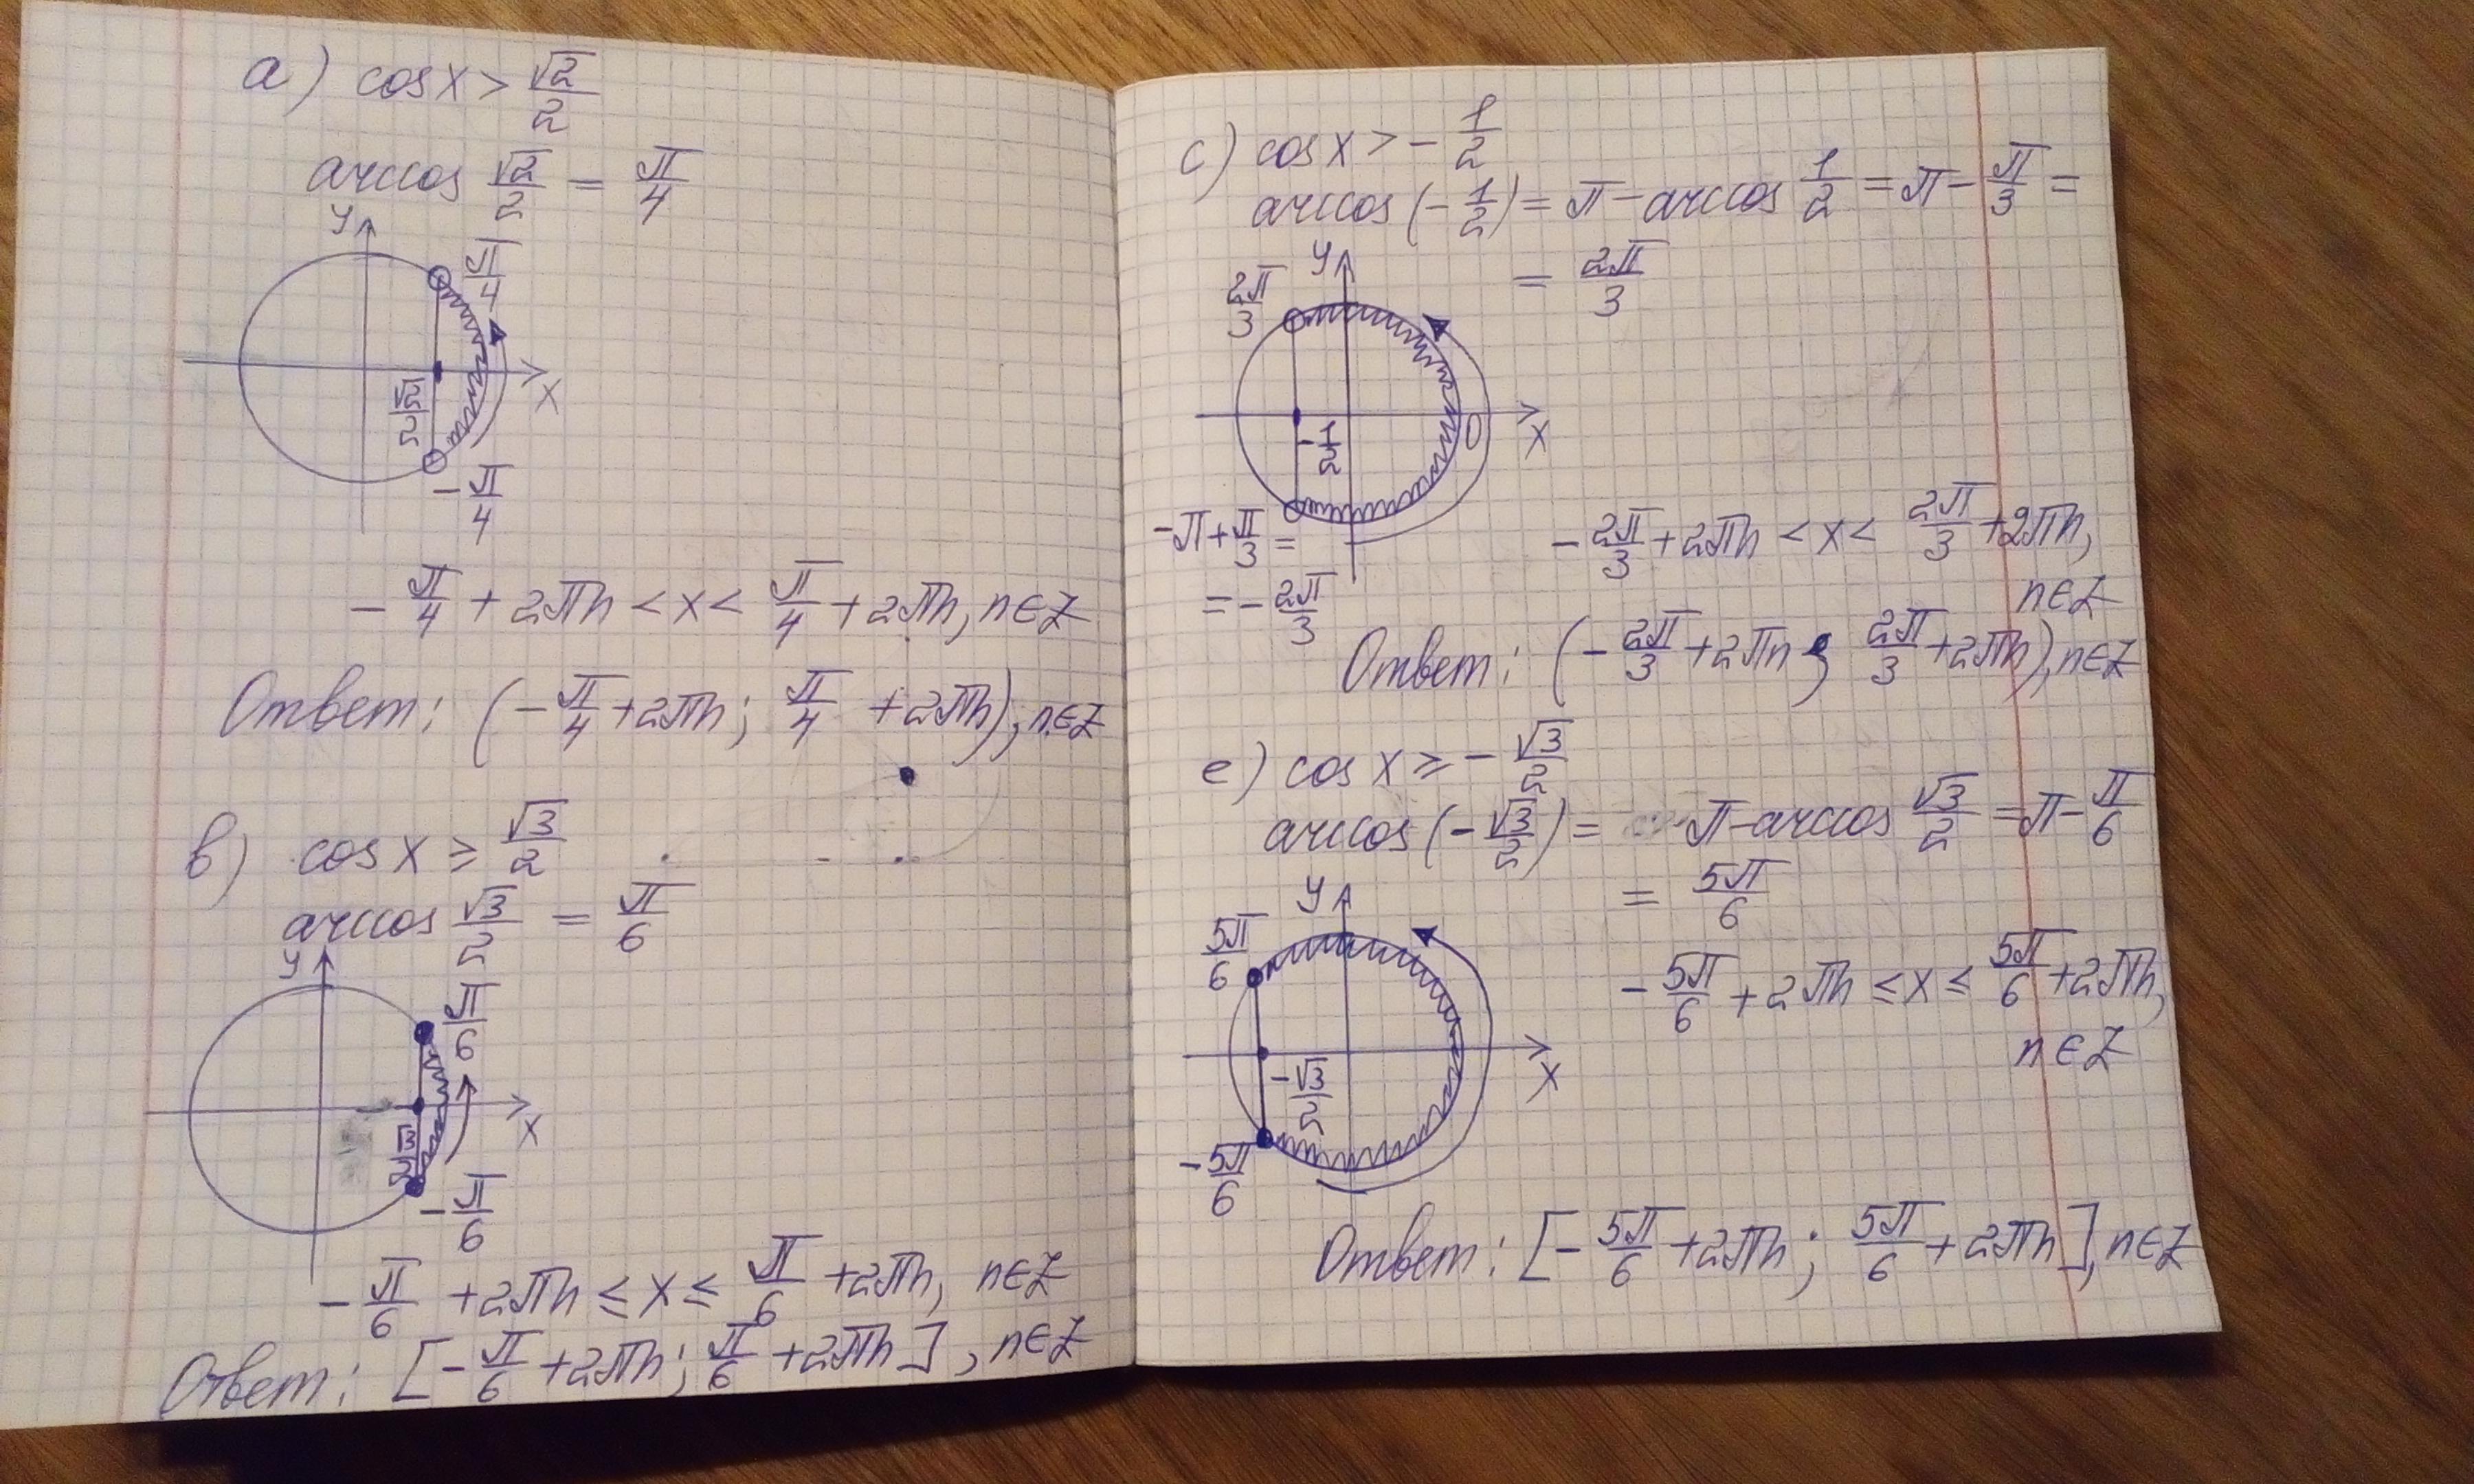 а) cos x > √2/2
arccos √2/2 = π/4
y
π/4
√2/2
x
-π/4
-π/4 + 2πn < x < π/4 + 2πn, n∈Z
Ответ: (-π/4 + 2πn; π/4 + 2πn), n∈Z
в) cos x ≥ √3/2
arccos √3/2 = π/6
y
π/6
√3/2
x
-π/6
-π/6 + 2πn ≤ x ≤ π/6 + 2πn, n∈Z
Ответ: [-π/6 + 2πn; π/6 + 2πn], n∈Z
с) cos x > -1/2
arccos (-1/2) = π - arccos 1/2 = π - π/3 =
= 2π/3
y
2π/3
-1/2
0
x
-π + π/3 =
= -2π/3
-2π/3 + 2πn < x < 2π/3 + 2πn,
n∈Z
Ответ: (-2π/3 + 2πn; 2π/3 + 2πn), n∈Z
е) cos x ≥ -√3/2
arccos (-√3/2) = π - arccos √3/2 = π - π/6
= 5π/6
y
5π/6
-√3/2
x
-5π/6
-5π/6 + 2πn ≤ x ≤ 5π/6 + 2πn,
n∈Z
Ответ: [-5π/6 + 2πn; 5π/6 + 2πn], n∈Z